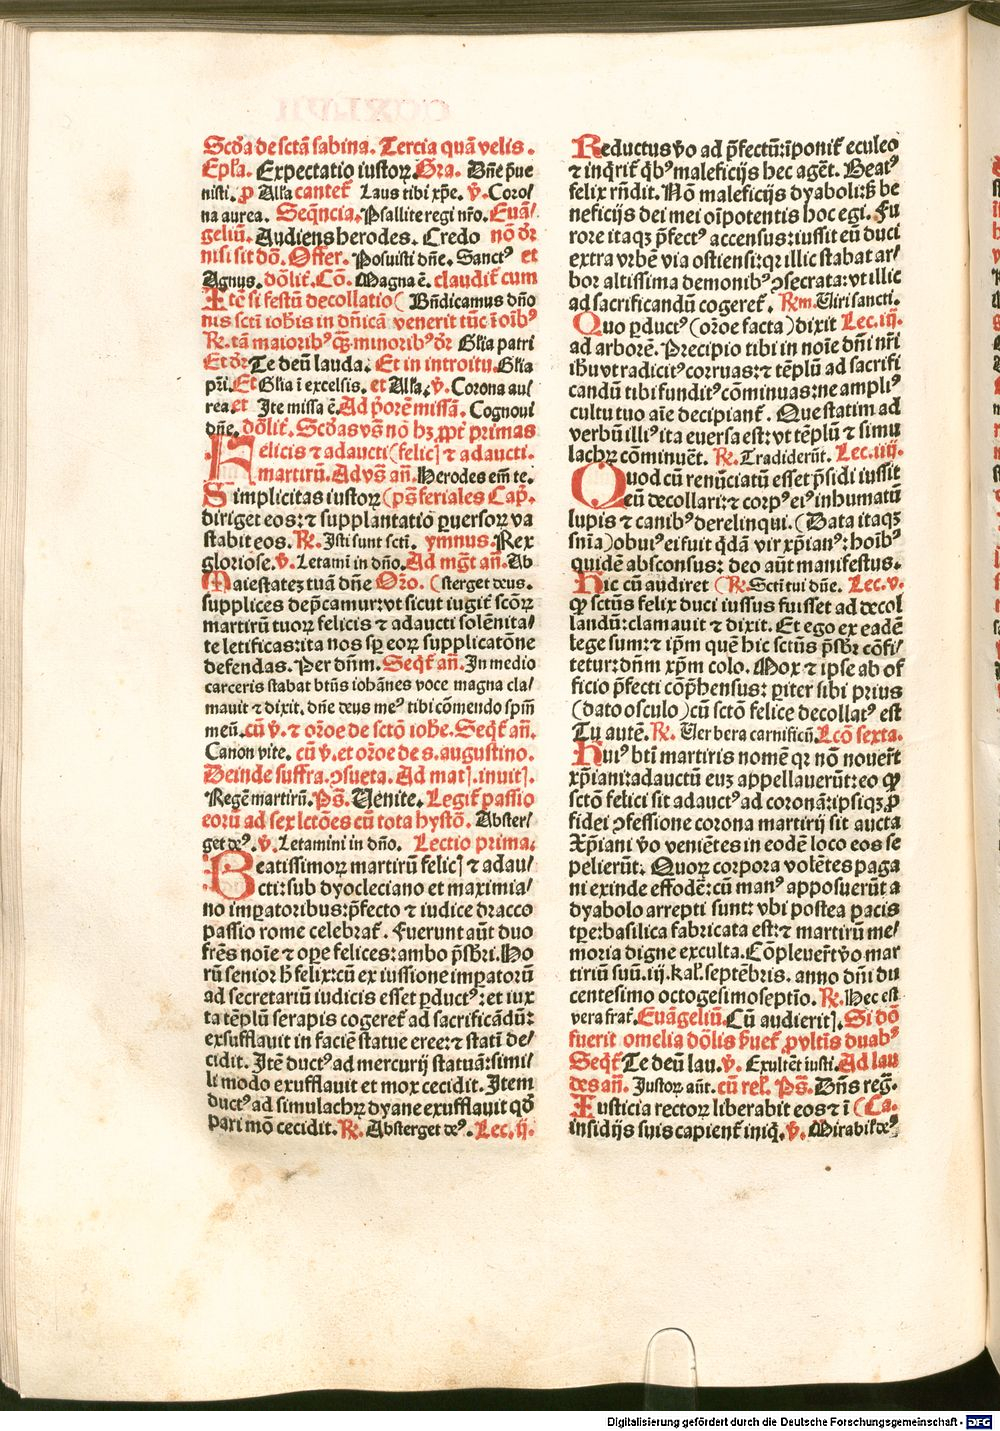 Scd̄a de sctā sabina. Tercia quā velis.
Epła. Expectatio iustoꝝ. Gra. Dn̄e p̄ue
nisti. ꝓ Alła cantet̄ Laus tibi xp̄e. v̄. Coro/
na aurea. Seq̄ncia. Psallite regi nr̄o. Euā/
geliū. Audiens herodes. Credo nō dr̄
nisi sit dō. Offer. Posuisti dn̄e. Sanctꝰ et
Agnus. dōlit̄. Cō. Magna ē. claudit̄ cum
Itē si festū decollatio ( Bn̄dicamus dn̄o
nis scti ioh̄is in dn̄icā venerit tūc ī oībꝰ
R̄. tā maioribꝰ q̄ꝫ minoribꝰ dr̄ Gl̄ia patri
Et dr̄ Te deū lauda. Et in introitu. Gl̄ia
pr̄i. Et Gl̄ia ī excelsis. et Alła. v̄. Corona au/
rea. et Ite missa ē. Ad p̄orē missā. Cognoui
dn̄e. dōlit̄. Scd̄as vs̄ nō hꝫ ꝓpt̄ primas
Felicis ⁊ adaucti (felicꝭ ⁊ adaucti.
martirū. Ad vs̄ an̄. Herodes em̄ te.
Simplicitas iustoꝝ (ps̄ feriales Cap̄.
diriget eos: ⁊ supplantatio ꝑuersoꝝ va
stabit eos. R̄. Isti sunt scti. ymnus. Rex
gloriose. v̄. Letami in dn̄o. Ad mḡt an̄. Ab
Maiestateꝫ tuā dn̄e Or̄o. (sterget deus.
supplices dep̄camur: vt sicut iugit̄ scōꝝ
martirū tuoꝝ felicis ⁊ adaucti solēnita/
te letificas: ita nos sꝑ eoꝝ supplicatōne
defendas. Per dn̄m. Seqt̄ an̄. In medio
carceris stabat bt̄ūs iohānes voce magna cla/
mauit ⁊ dixit. dn̄e deus meꝰ tibi cōmendo spm̄
meū. cū v̄. ⁊ or̄oe de sctō ioh̄e. Seqt̄ an̄.
Canon vite. cū v̄. et or̄oe de s. augustino.
Deinde suffra. ꝯsueta. Ad matꝭ. inuitꝭ.
Regē martirū. Ps̄. Venite. Legit̄ passio
eorū ad sex lctōes cū tota hystō. Abster/
get deꝰ. v̄. Letamini in dn̄o. Lectio prima.
Beatissimoꝝ martirū felicꝭ ⁊ adau/
cti: sub dyocleciano et maximia/
no imꝑatoribus: p̄fecto ⁊ iudice dracco
passio rome celebrat̄. Fuerunt aūt duo
frēs noīe ⁊ oꝑe felices: ambo p̄sb̄ri. Ho
rū senior h̄ felix: cū ex iussione imꝑatorū
ad secretariū iudicis esset ꝑductꝰ: et iux
ta tēplū serapis cogeret̄ ad sacrificādū:
exsufflauit in faciē statue eree: ⁊ stati de/
cidit. Itē ductꝰ ad mercurij statuā: simi/
li modo exufflauit et mox cecidit. Item
ductꝰ ad simulachꝝ dyane exufflauit qd̄
pari mō cecidit. R̄. Absterget deꝰ. Lec. ij.
Reductus v̄o ad p̄fectū: īponit̄ eculeo
⁊ inq̄rit̄ q̄bꝰ maleficijs hec aget̄. Beatꝰ
felix rn̄dit. Nō maleficijs dyaboli: ß be
neficijs dei mei oīpotentis hoc egi. Fu
rore itaqꝫ p̄fectꝰ accensus: iussit eū duci
extra vrbē via ostiensi: qꝛ illic stabat ar/
bor altissima demonibꝰ ꝯsecrata: vt illic
ad sacrificandū cogeret̄. R̄m. Viri sancti.
Quo ꝑductꝰ (or̄oe facta) dixit Lec. iij.
ad arborē. Precipio tibi in noīe dn̄i nr̄i
ih̄u vt radicitꝰ corruas: ⁊ tēplū ad sacrifi
candū tibi funditꝰ cōminuas: ne ampliꝰ
cultu tuo aīe decipiant̄. Que statim ad
verbū illiꝰ ita euersa est: vt tēplū ⁊ simu
lachꝝ cōminuēt. R̄. Tradiderūt. Lec. iiij.
Quod cū renūciatū esset p̄sidi iussit
eū decollari: ⁊ corpꝰ eiꝰ inhumatū
lupis ⁊ canibꝰ derelinqui. (Data itaqꝫ
snīa) obuiꝰ ei fuit q̄dā vir xp̄ianꝰ: hoībꝰ
quidē absconsus: deo aūt manifestus.
Hic cū audiret (R̄. Scti tui dn̄e. Lec. v.
ꝙ sctūs felix duci iussus fuisset ad decol
landū: clamauit ⁊ dixit. Et ego ex eadē
lege sum: ⁊ ip̄m quē hic sctūs p̄sb̄r cōfi/
tetur: dn̄m xp̄m colo. Mox ⁊ ipse ab of
ficio p̄fecti cōp̄hensus: ꝑiter sibi prius
(dato osculo) cū sctō felice decollatꝰ est
Tu autē. R̄. Verbera carnificū. Lcō sexta.
Huiꝰ bt̄i martiris nomē qꝛ nō nouer̄t
xp̄iani: adauctū euꝫ appellauerūt: eo ꝙ
sctō felici sit adauctꝰ ad coronā: ipsiqꝫ ꝓ
fidei ꝯfessione corona martirij sit aucta
Xp̄iani v̄o veniētes in eodē loco eos se
pelierūt. Quoꝝ corpora volētes paga
ni exinde effodē: cū manꝰ apposuerūt a
dyabolo arrepti sunt: vbi postea pacis
tp̄e: basilica fabricata est: ⁊ martirū me/
moria digne exculta. Cōpleuer̄t v̄o mar
tiriū suū. iij. kal̄. septēbris. anno dn̄i du
centesimo octogesimoseptīo. R̄. Hec est
vera frat̄. Euāgeliū. Cū audieritꝭ. Si dō
fuerit omelia dōlis p̄uet̄ ꝓ vltis duabꝰ
Seqt̄ Te deū lau. v̄. Exultēt iusti. Ad lau
des an̄. Iustoꝝ aūt. cū rel̄. Ps̄. Dn̄s reḡ.
Iusticia rectoꝝ liberabit eos ⁊ ī (Ca.
insidijs suis capient̄ iniq̄. v̄. Mirabił deꝰ
Digitalisierung gefördert durch die Deutsche Forschungsgemeinschaft - DFG